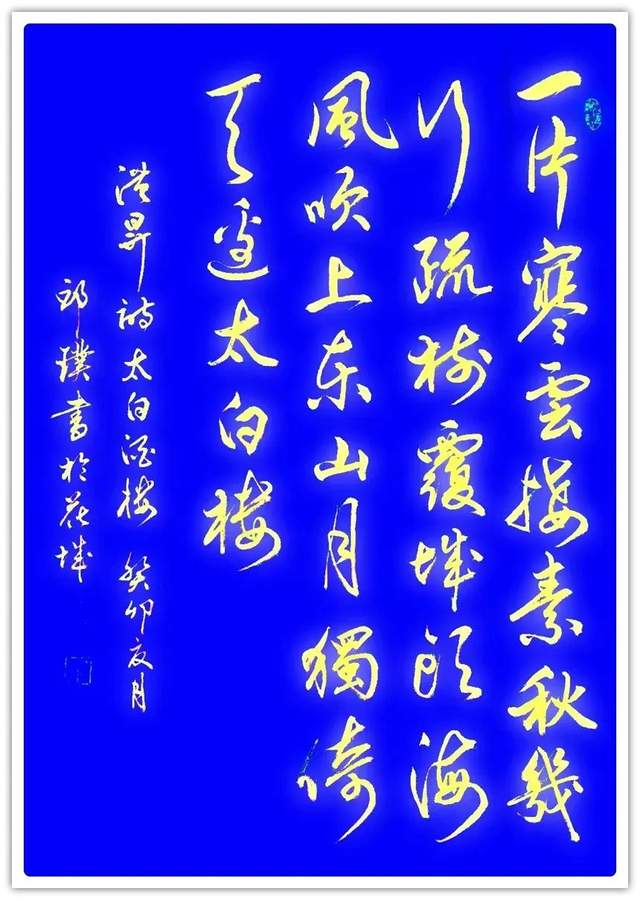 一片寒雲接素秋幾
行疏樹覆城頭海
風吹上東山月獨倚
天邊太白樓
洪昇詩太白酒樓 癸卯夏月
璞書於花城